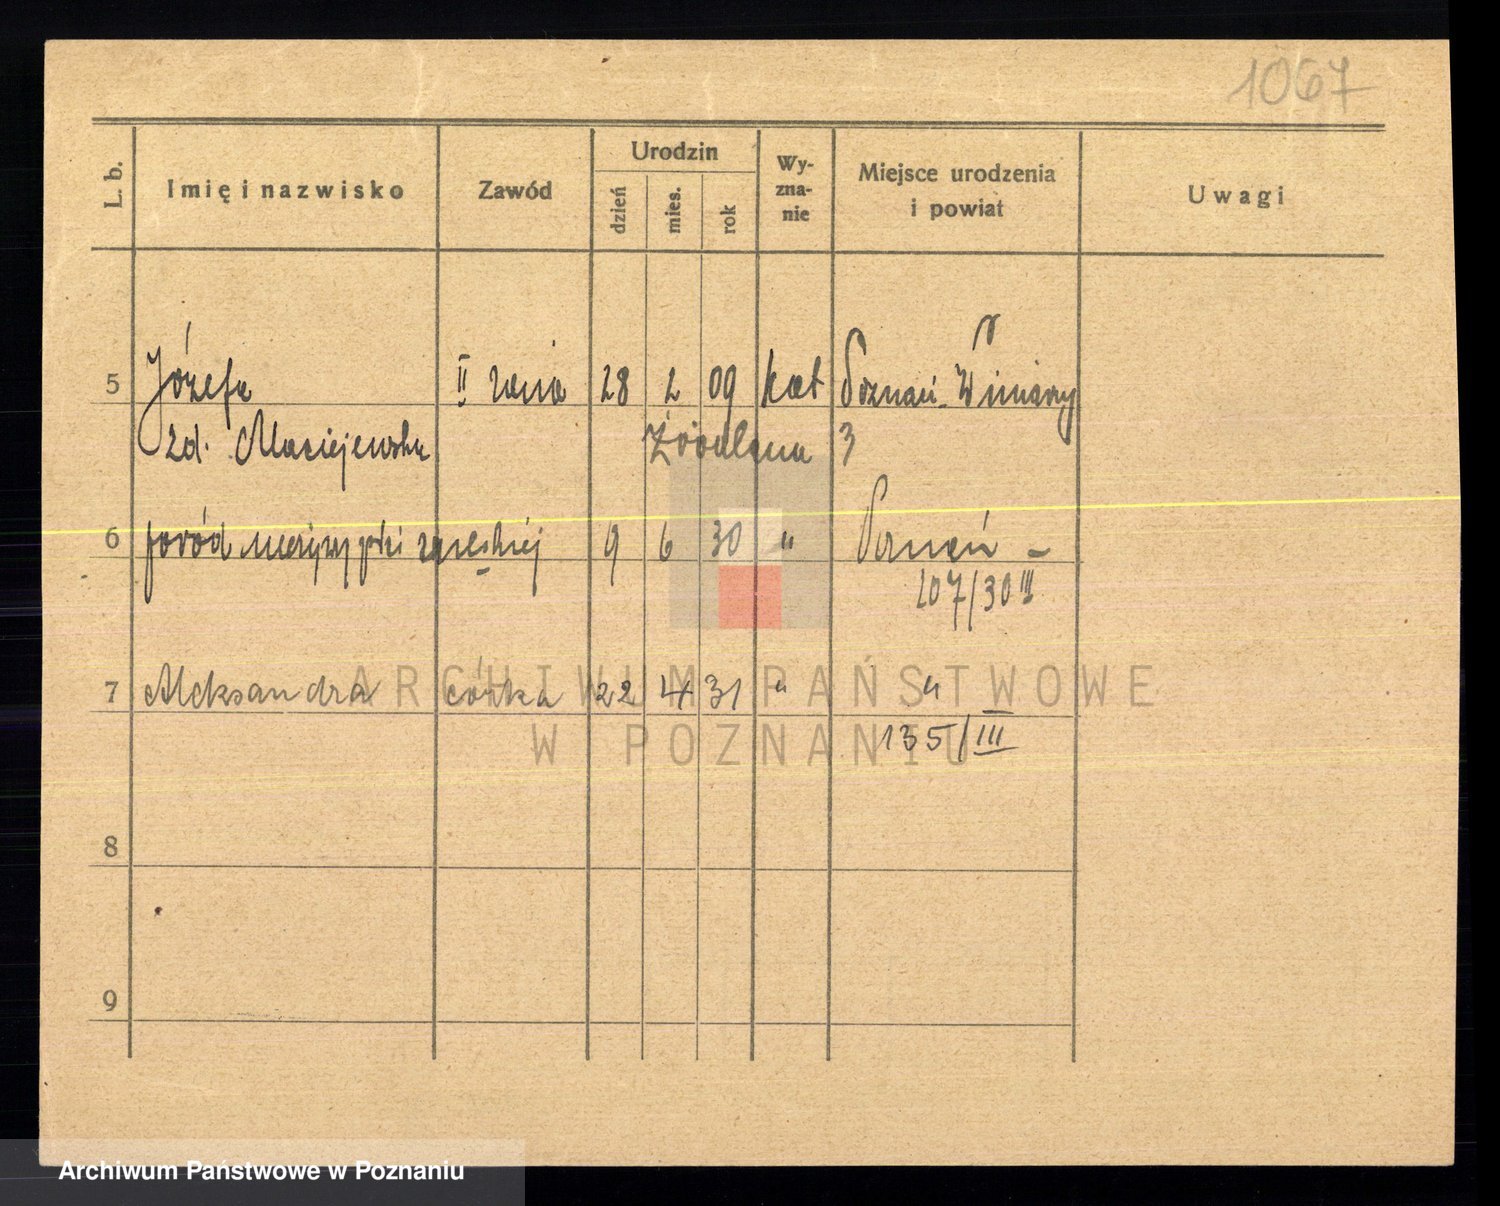 1067
L. b.
Imię i nazwisko
Zawód
Urodzin
dzień
mies.
rok
Wy-
zna-
nie
Miejsce urodzenia
i powiat
Uwagi
5 Józefa II żona 28 2 09 kat Poznań-Winiary
zd. Maciejewska Źródlana 3
6 poród nieżywy płci męskiej 9 6 30 " Poznań -
107/30 III
7 Aleksandra córka 22 4 31 " "
135/III
8
9
ARCHIWUM PAŃSTWOWE
W POZNANIU
Archiwum Państwowe w Poznaniu